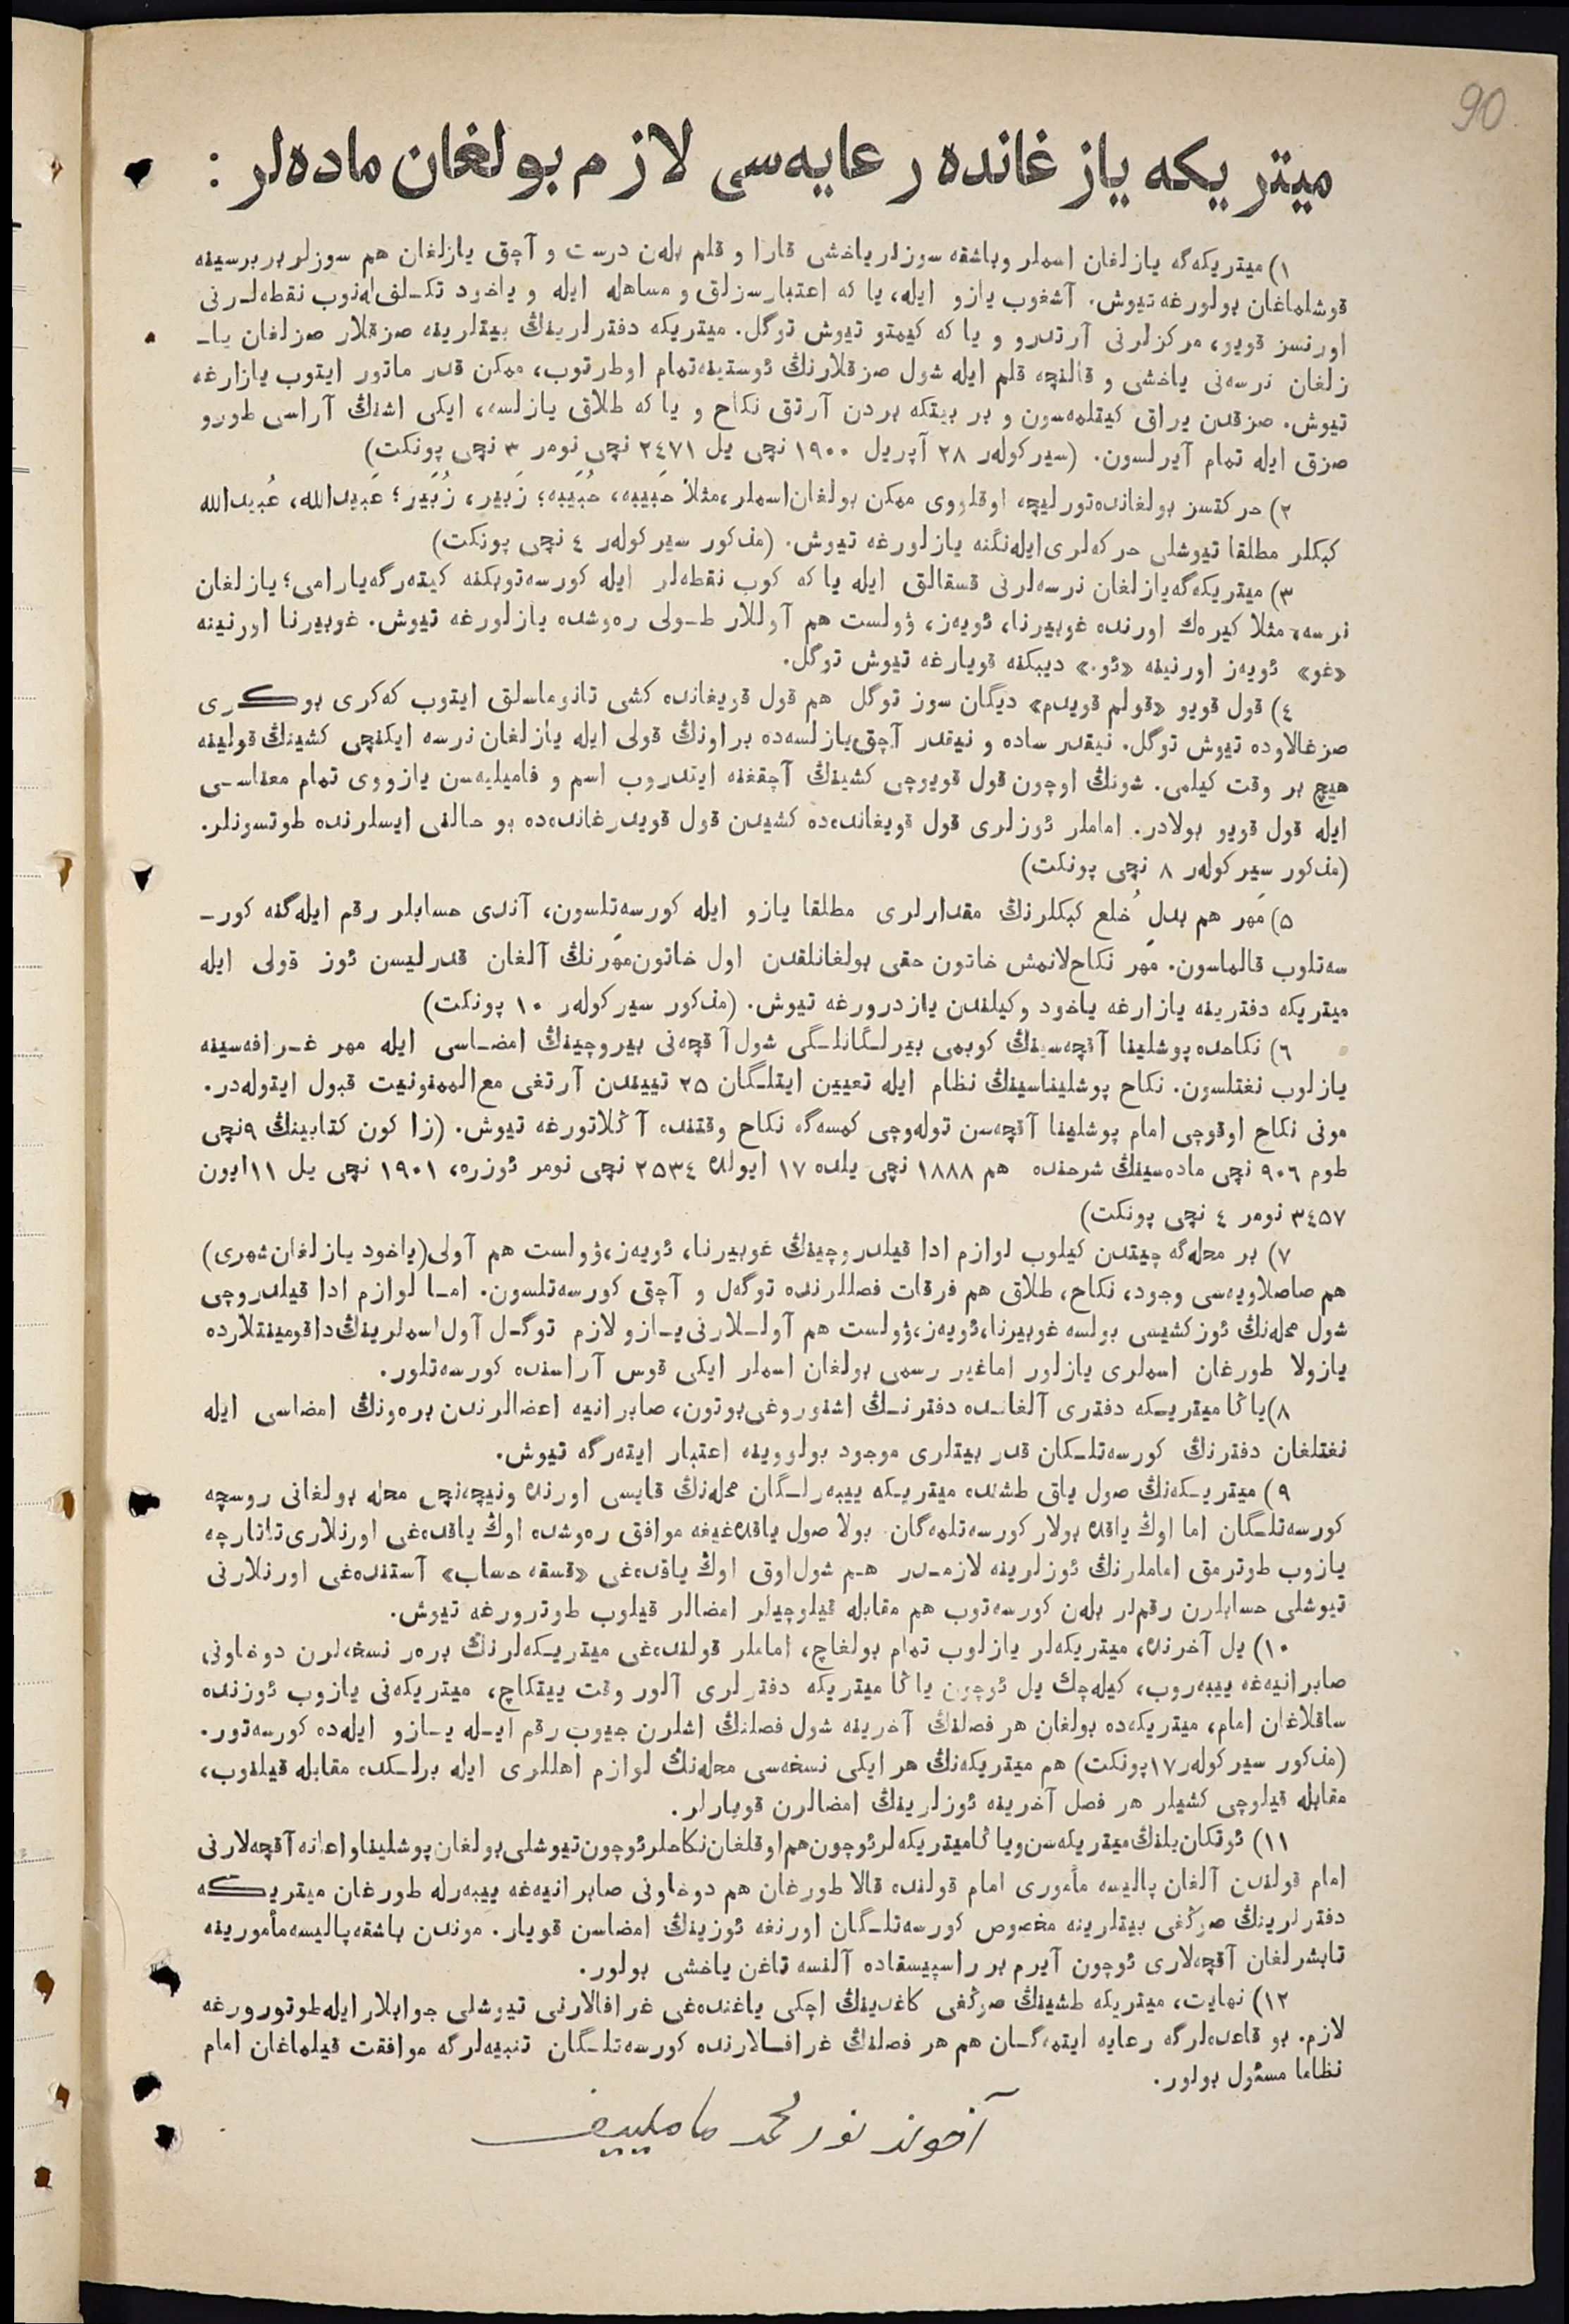 90
میتریكه یازغانده رعایه‌سی لازم بولغان ماده‌لر :
١) میتریكه‌گه یازلغان اسملر وباشقه سوزلر یاخشی قارا و قلم بله‌ن درست و آچق یازلغان هم سوزلر بربرسینه
قوشلماغان بولورغه تیوش. آشغوب یازو ایله، یا كه اعتبارسزلق و مساهله ایله و یاخود تكـلف‌له‌نوب نقطه‌لـرنی
اورنسز قویو، مركزلرنی آرتدرو و یا كه كیمتو تیوش توگل. میتریكه دفترلرینڭ بیتلرینه صزقلار صزلغان یاـ
زلغان نرسه‌نی یاخشی و قالنچه قلم ایله شول صزقلارنڭ ئوستینه‌تمام اوطرتوب، ممكن قدر ماتور ایتوب یازارغه
تیوش. صزقدن یراق كیتلمه‌سون و بر بیتكه بردن آرتق نكاح و یا كه طلاق یازلسه، ایكی اشنڭ آراسی طورو
صزق ایله تمام آیرلسون. (سیركوله‌ر ٢٨ آپریل ١٩٠٠ نچی یل ٢٤٧١ نچی نومر ٣ نچی پونكت)
٢) حركتسز بولغانده‌تورلیچه اوقلووی ممكن بولغان‌اسملر، مثلاً حَبیبه، حُبَیبه؛ زَبیر، زُبَیر؛ عَبیدالله، عُبیدالله
كبكلر مطلقا تیوشلی حركه‌لری‌ایله‌نگنه یازلورغه تیوش. (مذكور سیركوله‌ر ٤ نچی پونكت)
٣) میتریكه‌گه‌یازلغان نرسه‌لرنی قسقالق ایله یا كه كوب نقطه‌لر ایله كورسه‌توبكنه كیته‌رگه‌یارامی؛ یازلغان
نرسه‌ده مثلا كیره‌ك اورنده غوبیرنا، ئویه‌ز، وٚولست هم آوللار طـولی ره‌وشده یازلورغه تیوش. غوبیرنا اورنینه
«غو» ئویه‌ز اورنینه «ئو.» دیبكنه قویارغه تیوش توگل.
٤) قول قویو «قولم قویدم» دیگان سوز توگل هم قول قویغانده كشی تانوماسلق ایتوب كه‌كری بوكـری
صزغالاوده تیوش توگل. نیقدر ساده و نیقدر آچق‌یازلسه‌ده براونڭ قولی ایله یازلغان نرسه ایكنچی كشینڭ قولینه
هیچ بر وقت كیلمی. شونڭ اوچون قول قویوچی كشینڭ آچقغنه ایتدروب اسم و فامیلیه‌سن یازووی تمام معناسـی
ایله قول قویو بولادر. اماملر ئوزلری قول قویغانده‌ده كشیدن قول قویدرغانده‌ده بو حالنی ایسلرنده طوتسونلر.
(مذكور سیركوله‌ر ٨ نچی پونكت)
٥) مَهر هم بدلِ خُلع كبكلرنڭ مقدارلری مطلقا یازو ایله كورسه‌تلسون، آندی حسابلر رقم ایله‌گنه كورـ
سه‌تلوب قالماسون. مَهر نكاح‌لانمش خاتون حقی بولغانلقدن اول خاتون‌مَهرنڭ آلغان قدرلیسن ئوز قولی ایله
میتریكه دفترینه یازارغه یاخود وكیلندن یازدرورغه تیوش. (مذكور سیركوله‌ر ١٠ پونكت)
٦) نكاحده‌ پوشلینا آقچه‌سینڭ كوبمی بیرلـگانلـگی شول‌آقچه‌نی بیروچینڭ امضـاسی ایله مهر غـرافه‌سینه
یازلوب نغتلسون. نكاح پوشلیناسینڭ نظام ایله تعیین ایتلـگان ٢٥ تییندن آرتغی مع‌الممنونیت قبول ایتوله‌در.
مونی نكاح اوقوچی امام پوشلینا آقچه‌سن توله‌وچی كمسه‌گه نكاح وقتنده آڭلاتورغه تیوش. (زاكون كتابینڭ ٩نچی
طوم ٩٠٦ نچی ماده‌سینڭ شرحنده هم ١٨٨٨ نچی یلده ١٧ ایولده ٢٥٣٤ نچی نومر ئوزره، ١٩٠١ نچی یل ١١ایون
٣٤٥٧ نومر ٤ نچی پونكت)
٧) بر محله‌گه چیتدن كیلوب لوازم ادا قیلدروچینڭ غوبیرنا، ئویه‌ز، وٚولست هم آولی(یاخود یازلغان‌شهری)
هم صاصلاویه‌سی وجود، نكاح، طلاق هم فرقات فصللرنده توگه‌ل و آچق كورسه‌تلسون. امـا لوازم ادا قیلدروچی
شول محله‌نڭ ئوز كشیسی بولسه غوبیرنا، ئویه‌ز، وٚولست هم آولـلارنی یـازو لازم توگـل آول‌اسملرینڭ‌داقومینتلارده
یازولا طورغان اسملری یازلور اماغیر رسمی بولغان اسملر ایكی قوس آراسنده كورسه‌تلور.
٨) یاڭا میتریـكه دفتری آلغانـده دفترنـڭ اشنوروغی‌بوتون، صابرانیه اعضالرندن بره‌ونڭ امضاسی ایله
نغتلغان دفترنڭ كورسه‌تلـكان قدر بیتلری موجود بولووینه اعتبار ایته‌رگه تیوش.
٩) میتریـكه‌نڭ صول یاق طشنده میتریـكه ییبه‌رلـگان محله‌نڭ قایسی اورنده ونیچه‌نچی محله بولغانی روسچه
كورسه‌تلـگان اما اوڭ یاقده بولار كورسه‌تلمه‌گان. بولا صول یاقده‌غیغه موافق ره‌وشده اوڭ یاقده‌غی اورنلاری‌تاتارچه
یازوب طوترمق اماملرنڭ ئوزلرینه لازمـدر هـم شول‌اوق اوڭ یاقده‌غی «قسقه حساب» آستنده‌غی اورنلارنی
تیوشلی حسابلرن رقم‌لر بله‌ن كورسه‌توب هم مقابله قیلوچیلر امضالر قیلوب طوترورغه تیوش.
١٠) یل آخرنده، میتریكه‌لر یازلوب تمام بولغاچ، اماملر قولنده‌غی میتریـكه‌لرنڭ بره‌ر نسخه‌لرن دوخاونی
صابرانیه‌غه ییبه‌روب، كیله‌چك یل ئوچون یاڭا میتریكه دفترلری آلور وقت ییتكاچ، میتریكه‌نی یازوب ئوزنده
ساقلاغان امام، میتریكه‌ده بولغان هر فصلنڭ آخرینه شول فصلنڭ اشلرن جیوب رقم ایـله یـازو ایله‌ده كورسه‌تور.
(مذكور سیركوله‌ر١٧پونكت) هم میتریكه‌نڭ هر ایكی نسخه‌سی محله‌نڭ لوازم اهللری ایله برلـكده مقابله قیلنوب،
مقابله قیلوچی كشیلر هر فصل آخرینه ئوزلرینڭ امضالرن قویارلر.
١١) ئوتكان‌یلنڭ‌میتریكه‌سن‌ویاڭامیتریكه‌لرئوچون‌هم‌اوقلغان‌نكاحلرئوچون‌تیوشلی‌بولغان‌پوشلیناواعانه‌آقچه‌لارنی
امام قولندن آلغان پالیسه مأموری امام قولنده قالا طورغان هم دوخاونی صابرانیه‌غه ییبه‌رله طورغان میتریـكه
دفترلرینڭ صوڭغی بیتلرینه مخصوص كورسه‌تلـگان اورنغه ئوزینڭ امضاسن قویار. موندن باشقه‌پالیسه‌مأمورینه
تابشرلغان آقچه‌لاری ئوچون آیرم بر راسپیسقاده آلنسه تاغن یاخشی بولور.
١٢) نهایت، میتریكه طشینڭ صوڭغی كاغدینڭ اچكی یاغنده‌غی غرافالارنی تیوشلی جوابلارایله‌طوتورورغه
لازم. بو قاعده‌لرگه رعایه ایتمه‌گـان هم هر فصلنڭ غرافـالارنده كورسه‌تلـگان تنبیه‌لرگه موافقت قیلماغان امام
نظاما مسئول بولور.
آخوند نورمحمد ماملییف